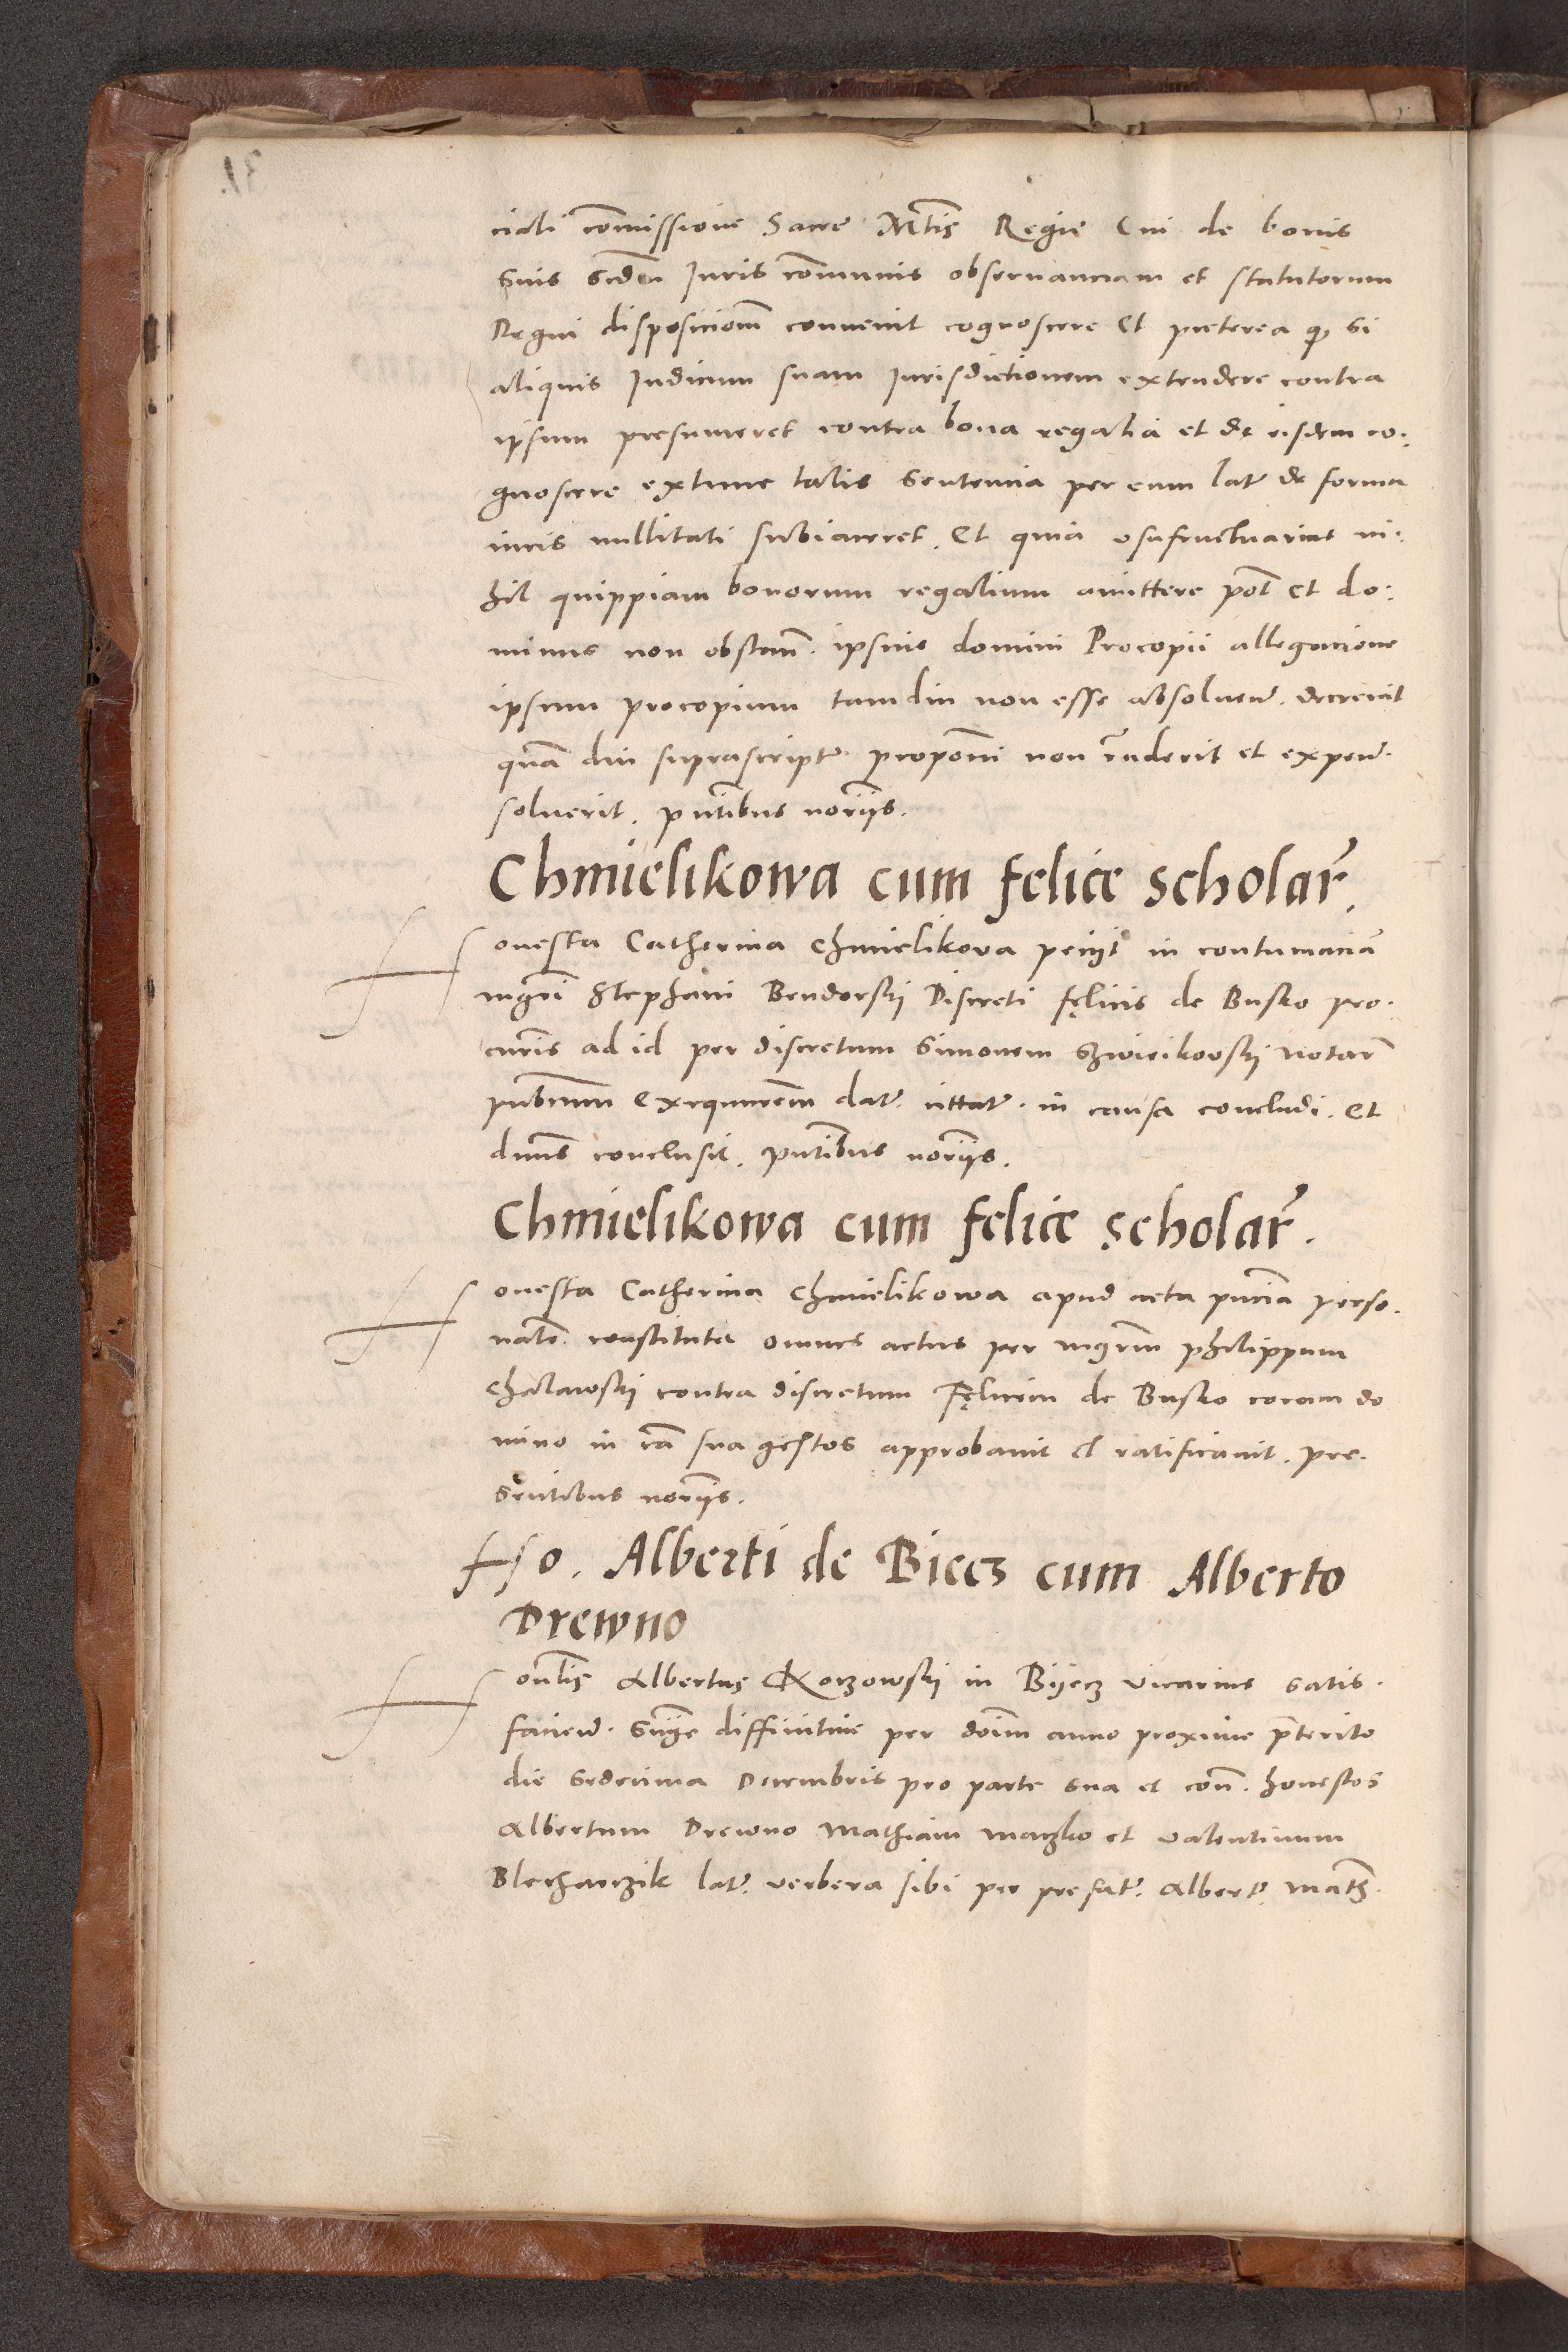 ciali com̃issione Sacre Mt̃is Regie Cui de bonis
suis scd̃m Iuris com̃unis obseruanciam et statutorum
Regni disposicionẽ conuenit cognoscere Et preterea si
aliquis Iudicum suam Iurisdictionem extendere contra
ipsum presumeret contra bona regalia et de eisdem co:
gnoscere extunc talis sentencia per eum lat̃ de forma
iuris nullitati subiaceret. Et quia vsufructuarius ni:
hil quippiam bonorum regalium amittere põt et do:
minus non obstan̄. ipsius domini Procopii allegacione
ipsum procopium tamdiu non esse absoluend̃. decreuit
quã diu suprascript̃ proponi non r̃nderit et expen̄.
soluerit. pñtibus nor̃iis.
Chmielikowa cum felice scholar̃.
Honesta Catherina Chmielikova petiit in contumaciã
mgr̃i Stephani Bendorskij Discreti felicis de Busko pro:
cur̃is ad id per discretum Simonem notar̃
publicum exequutorem dat̃. citat̃. in causa concludi. Et
dñus conclusit. pñtibus nor̃iis.
Chmielikowa cum felice scholar̃.
Honesta Catherina Chmielikowa apud acta pñcia perso:
nalr̃ constituta omnes actus per mgr̃m philippum
Chalawskij contra discretum Felicem de Busko coram do
mino in cã sua gestos approbauit et ratificauit. pre:
sentibus nor̃iis.
Hño. Alberti de Biecz cum Alberto
Drewno
Honñlis Albertus Korzowskij in Bijecz vicarius satis:
faciend̃. snı̃e diffinitiue per doĩm anno proxime p̃terito
die sedecima Decembris pro parte sua et con̄. honestos
Albertum Drewno Mathiam maczko et valentinum
Blecharczik lat̃. verbera sibi per prefat̃. Albert̃. math̃.